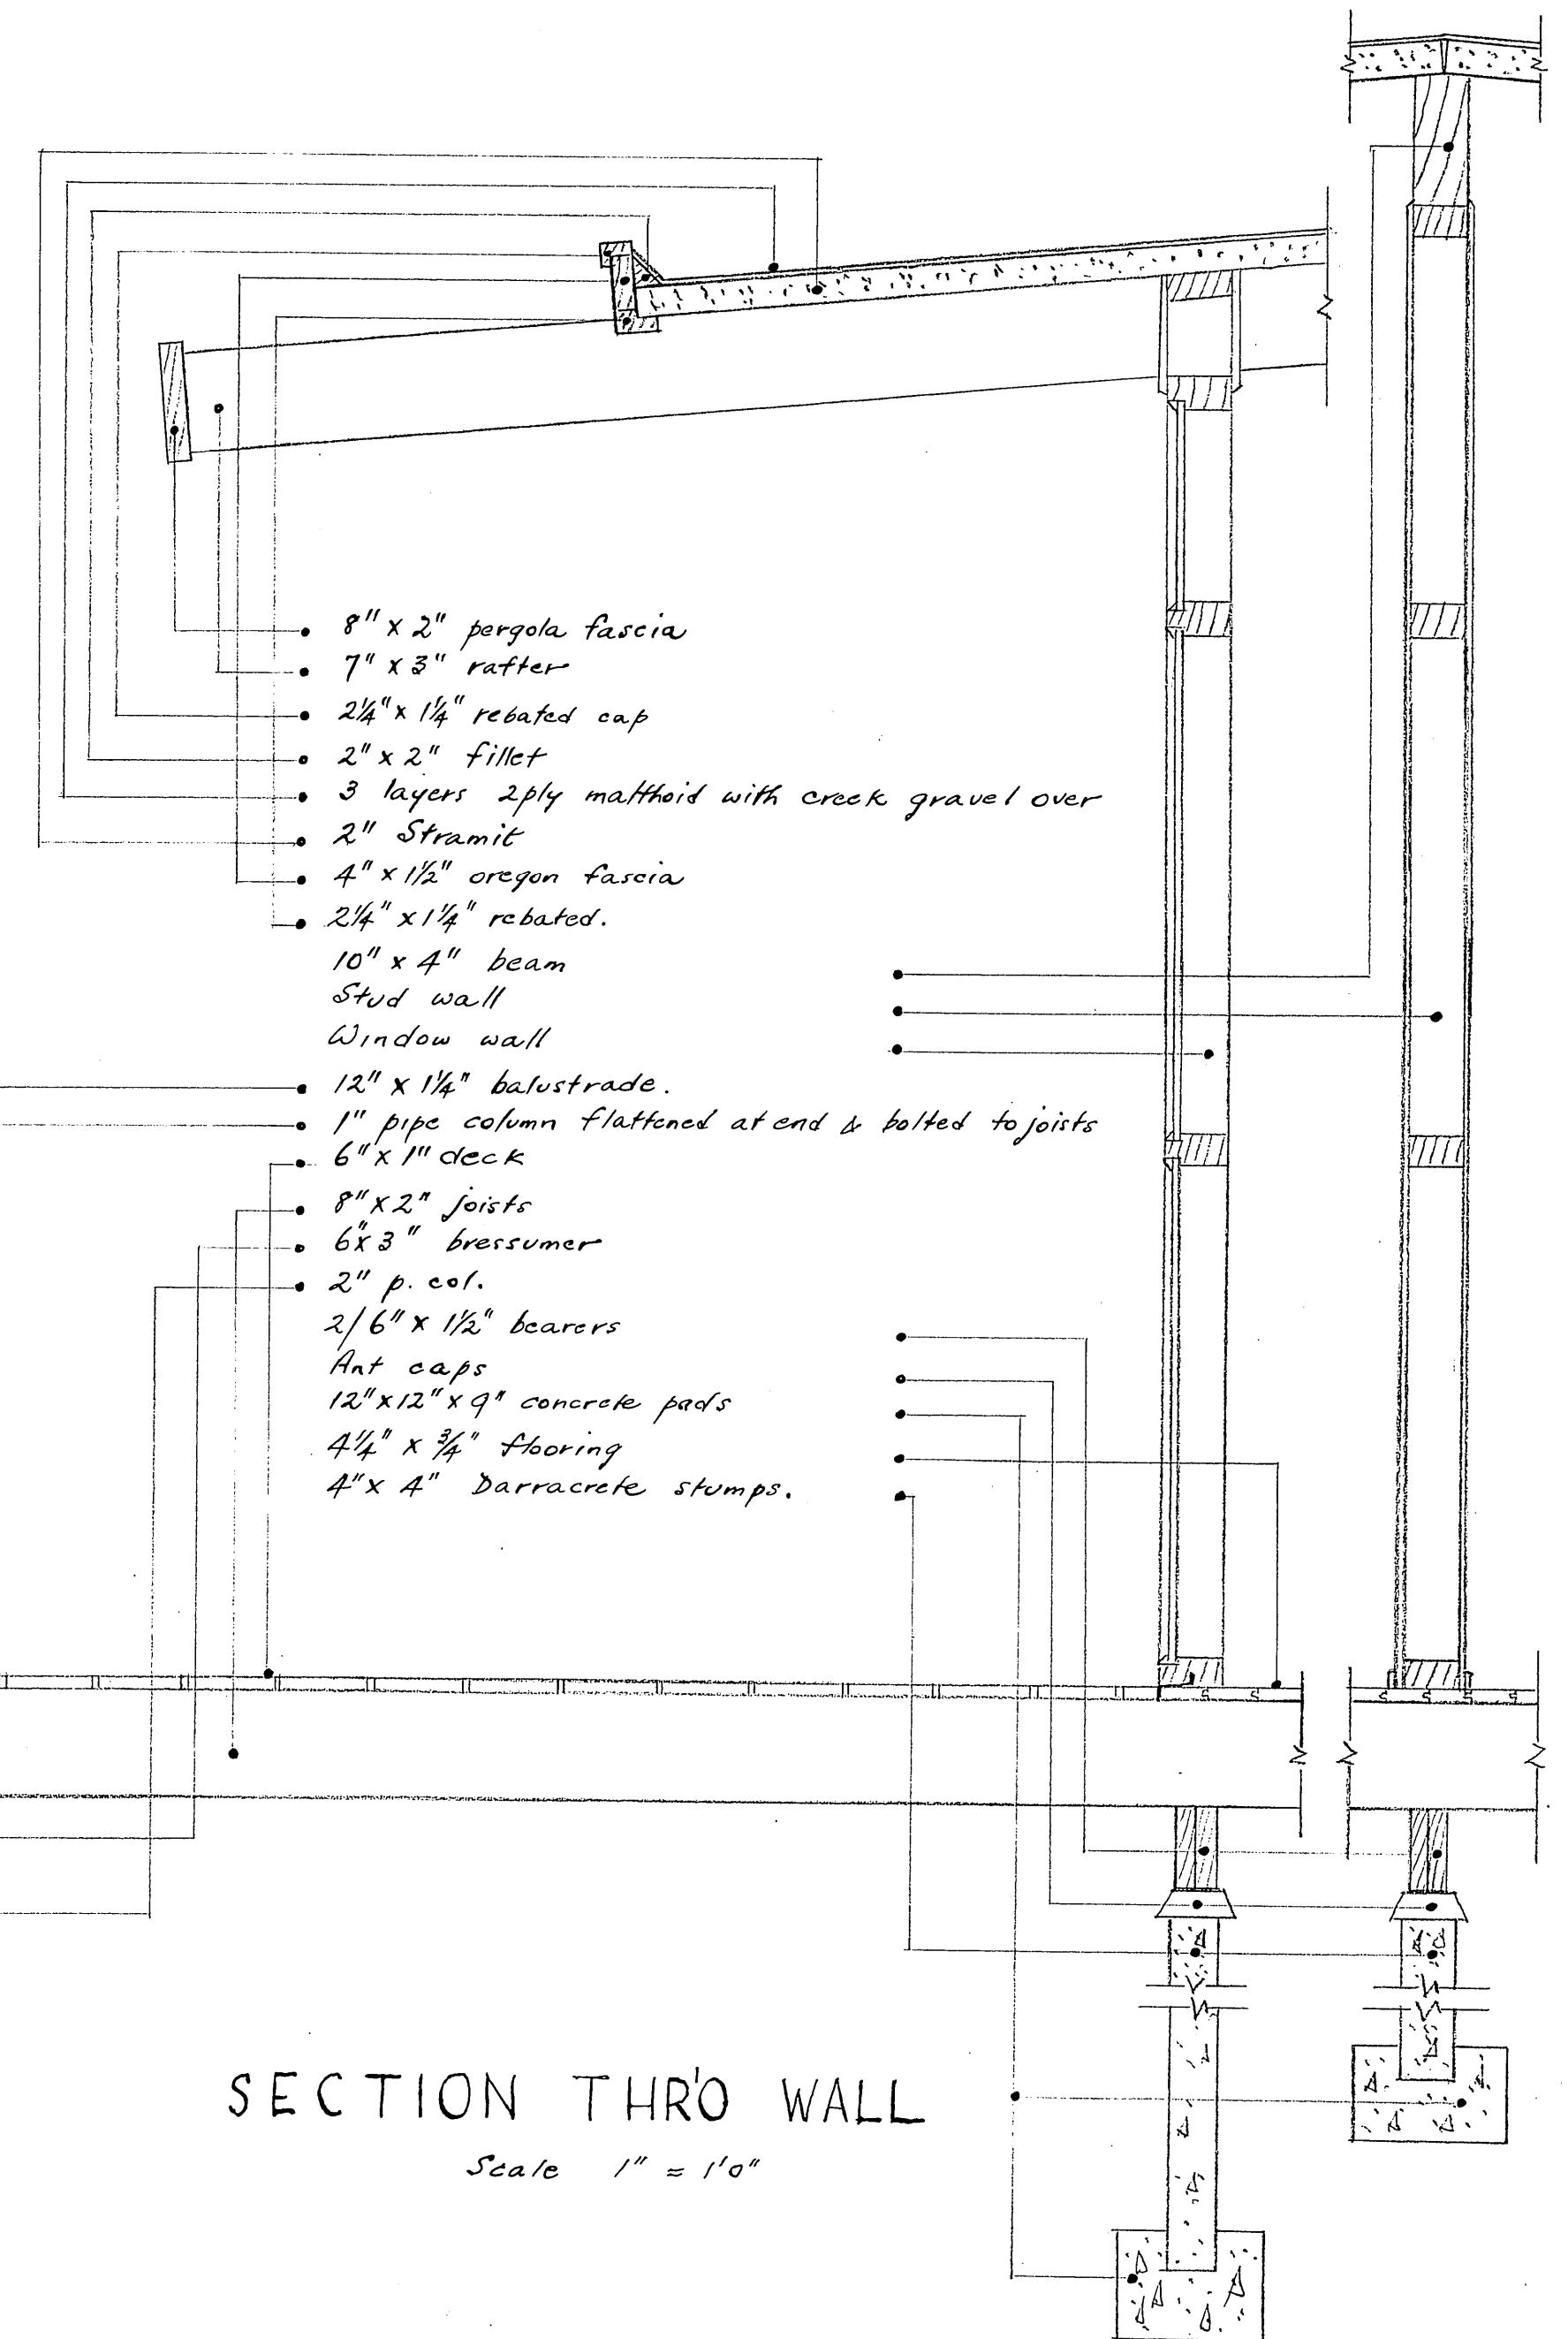 8" x 2" pergola fascia
7" x 3" rafter
2¼" x 1¼" rebated cap
2" x 2" fillet
3 layers 2ply malthoid with creek gravel over
2" Stramit
4" x 1½" oregon fascia
2¼" x 1¼" rebated.
10" x 4" beam
Stud wall
Window wall
12" x 1¼" balustrade.
1" pipe column flattened at end & bolted to joists
6" x 1" deck
8" x 2" joists
6" x 3" bressumer
2" p. col.
2/6" x 1½" bearers
Ant caps
12" x 12" x 9" concrete pads
4¼" x ¾" flooring
4" x 4" Darracrete stumps.
SECTION THR'O WALL
Scale 1" = 1'0"